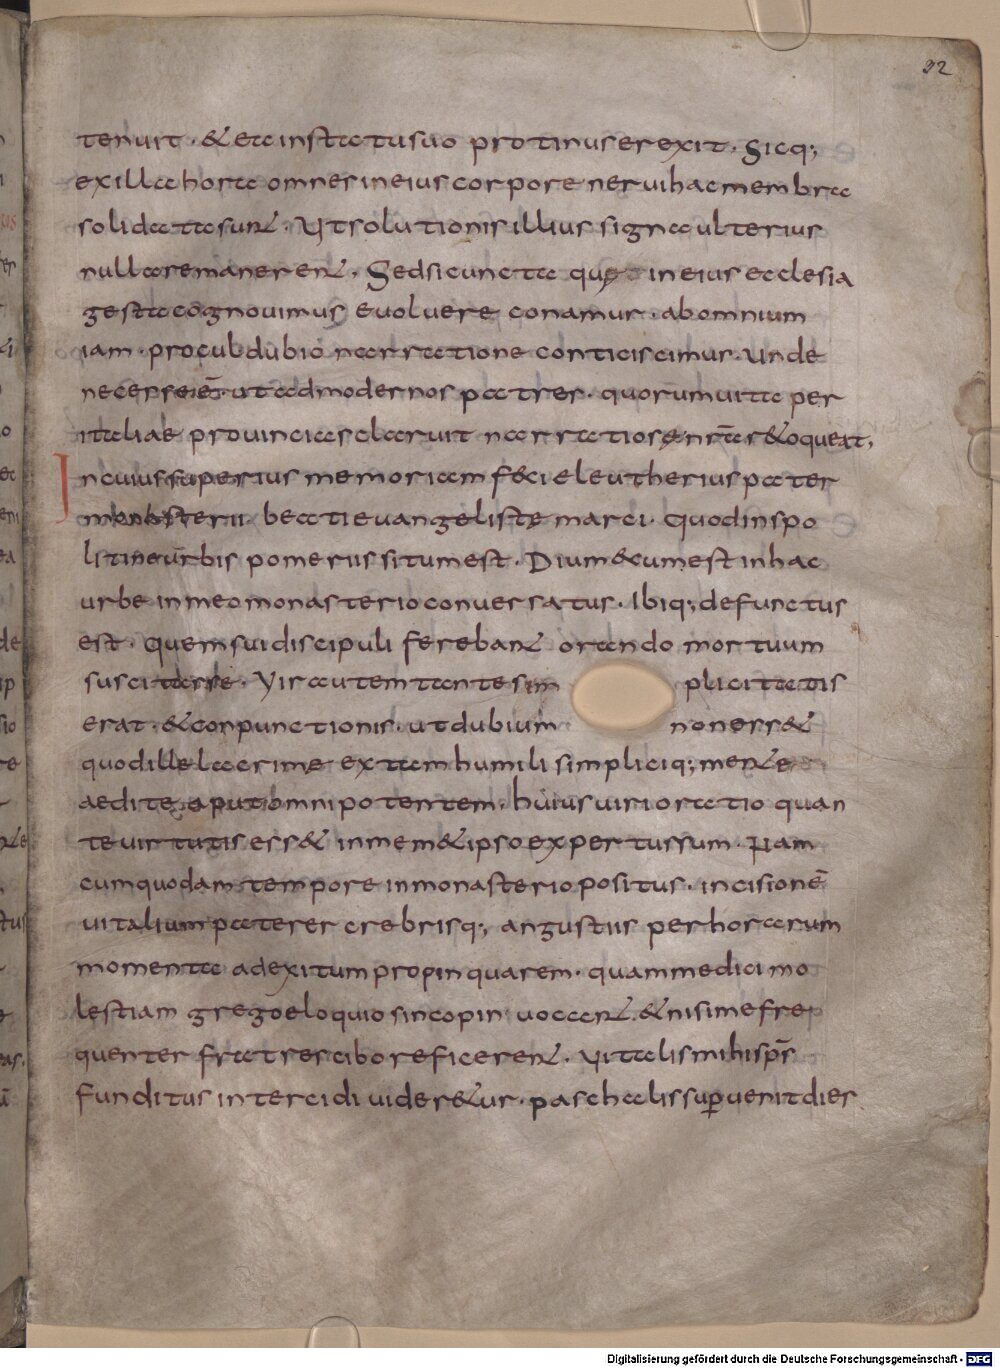 92
tenuit · & eam statu suo protinus erexit · Sicq;
ex illa hora omnes in eius corpore nerui hac membra
solidatae sunt · Ut solutionis illius signa ulterius
nulla remanerent · Sed si cuncta quę in eius ecclesia
gesta cognouimus euoluere conamur · ab omnium
iam · procul dubio narratione conticiscimus · Unde
necesse ē · ut ad modernos patres · quorum uita per
italiae prouincias claruit narratio se nr̄a s& oqueat,
In cuius superius memoriam feci eleutherius pater
monasterii · beati euangelistę marci · quod in spo
litine urbis pomeriis situm est · Dium & cum est in hac
urbe in meo monasterio conuersatus · Ibiq; defunctus
est · Quem sui discipuli ferebant orando mortuum
suscitasse · Vir autem tante sim plicitatis
erat · & conpunctionis · ut dubium non ess&
quod ille lacrime ex tam humili simpliciq; mente
aedite aput omnipotentem · huius uiri oratio quan
te uirtutis ess& in mem& ipso expertus sum · Nam
cum quodam tempore in monasterio positus · incisionē
uitalium paterer crebrisq; angustiis per horarum
momenta ad exitum propinquarem · quam medici mo
lestiam grego eloquio sincopin uocant · & nisi me fre
quenter fratres cibo reficerent · Vitalis mihi sps̄
funditus intercidi uider&ur · paschalis superuenit dies
Digitalisierung gefördert durch die Deutsche Forschungsgemeinschaft - DFG